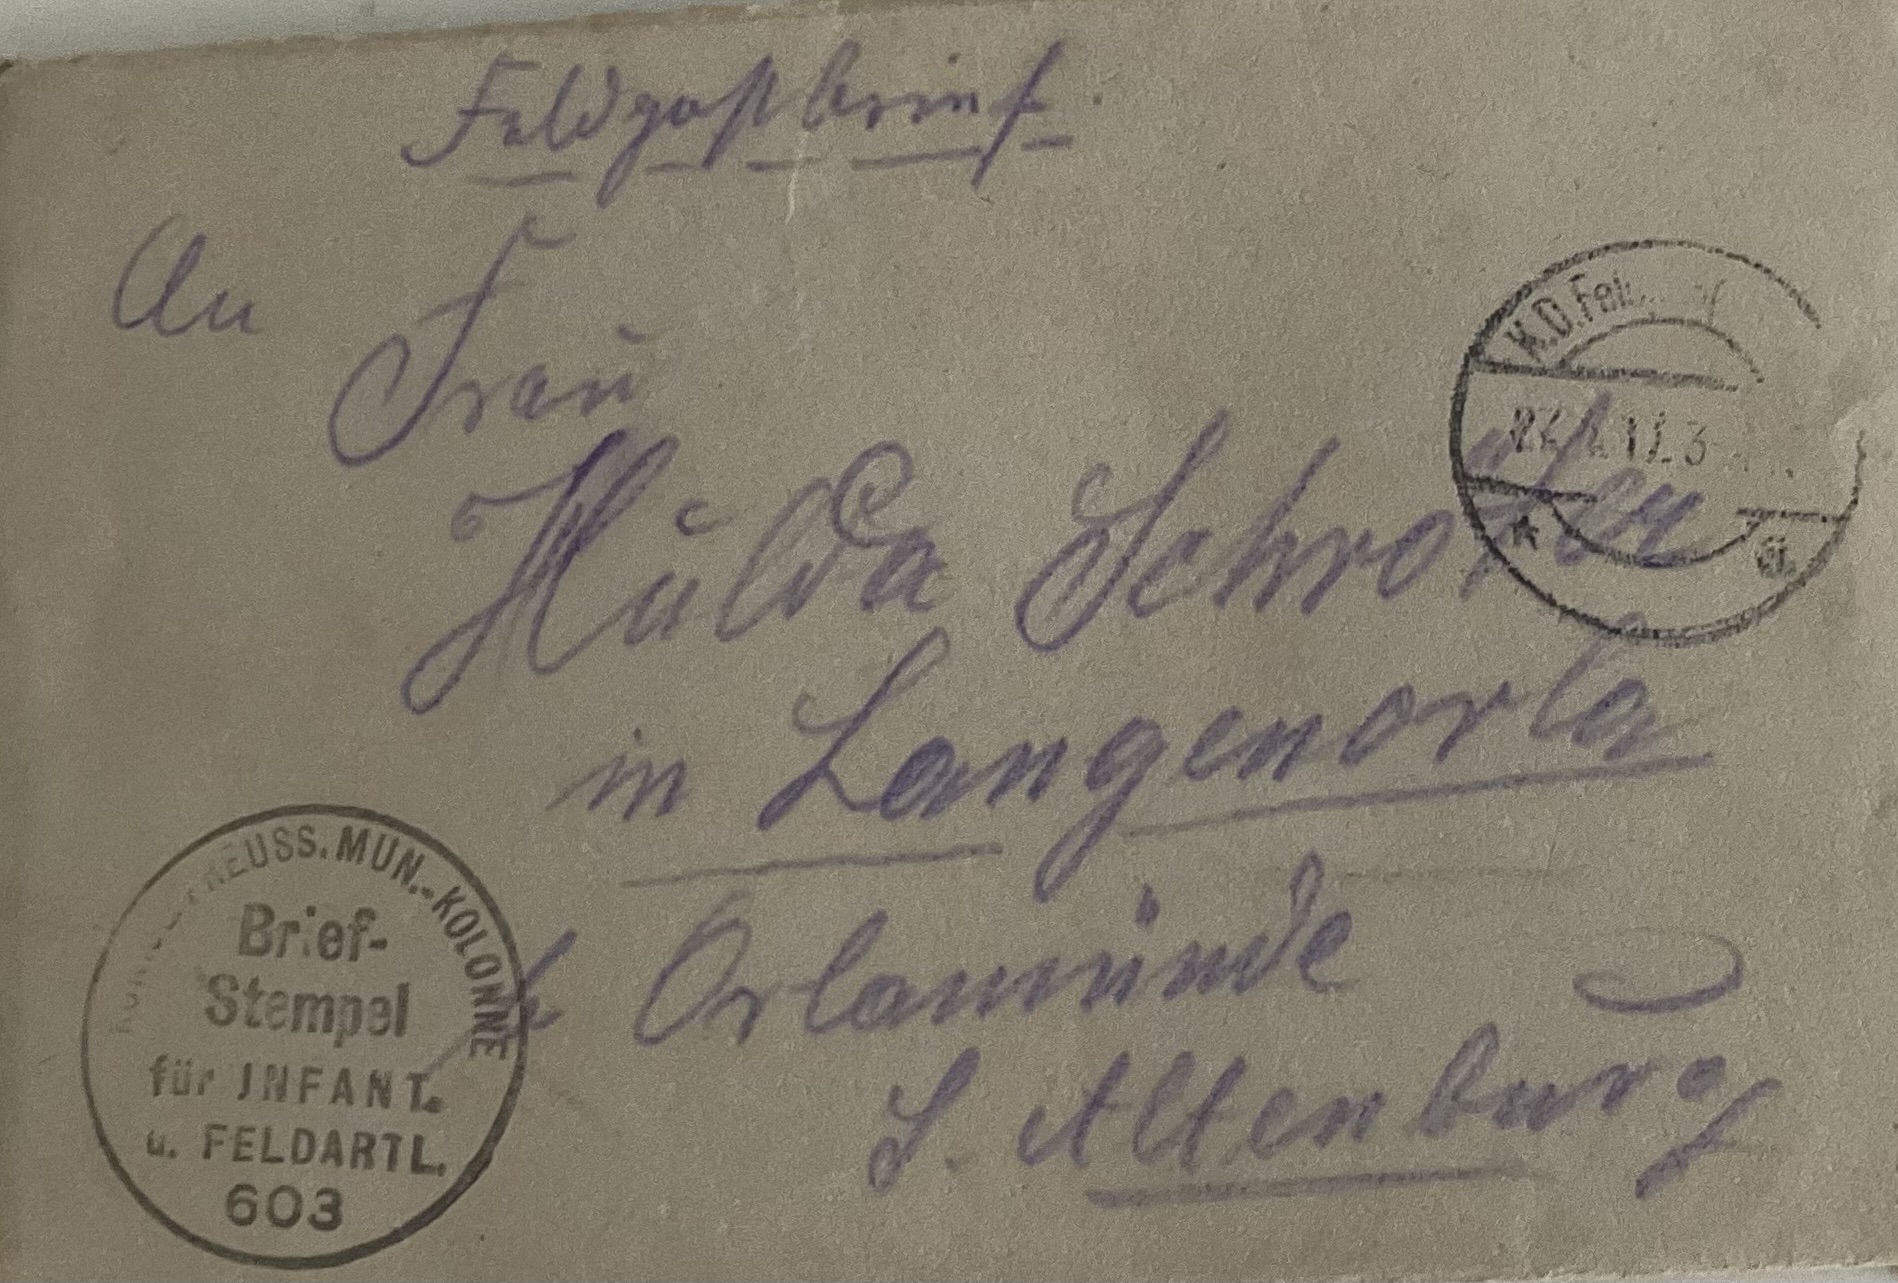 Feldpostbrief.
An
Frau
Hulda Schrotter
in Langenorla
b Orlamünde
S. Altenburg
K.D.Fel
3
PREUSS. MUN.-KOLONNE
Brief-
Stempel
für INFANT.
u. FELDARTL.
603